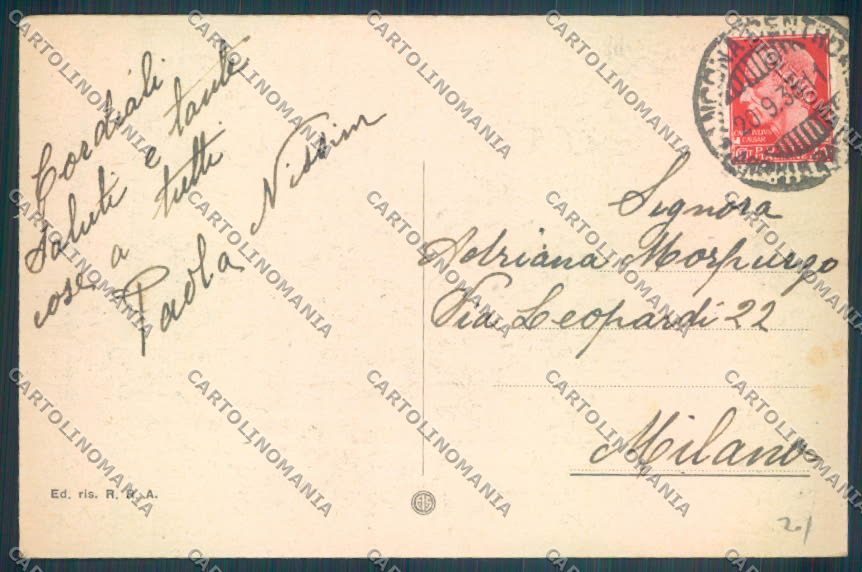 Cordiali
saluti e tante
cose a tutti
Paola Nissim
Signora
Adriana Morpurgo
Via Leopardi 22
Milano
Ed. ris. R. R. A.
ANCONA CENTRO
20.9.3
CARTOLINOMANIA